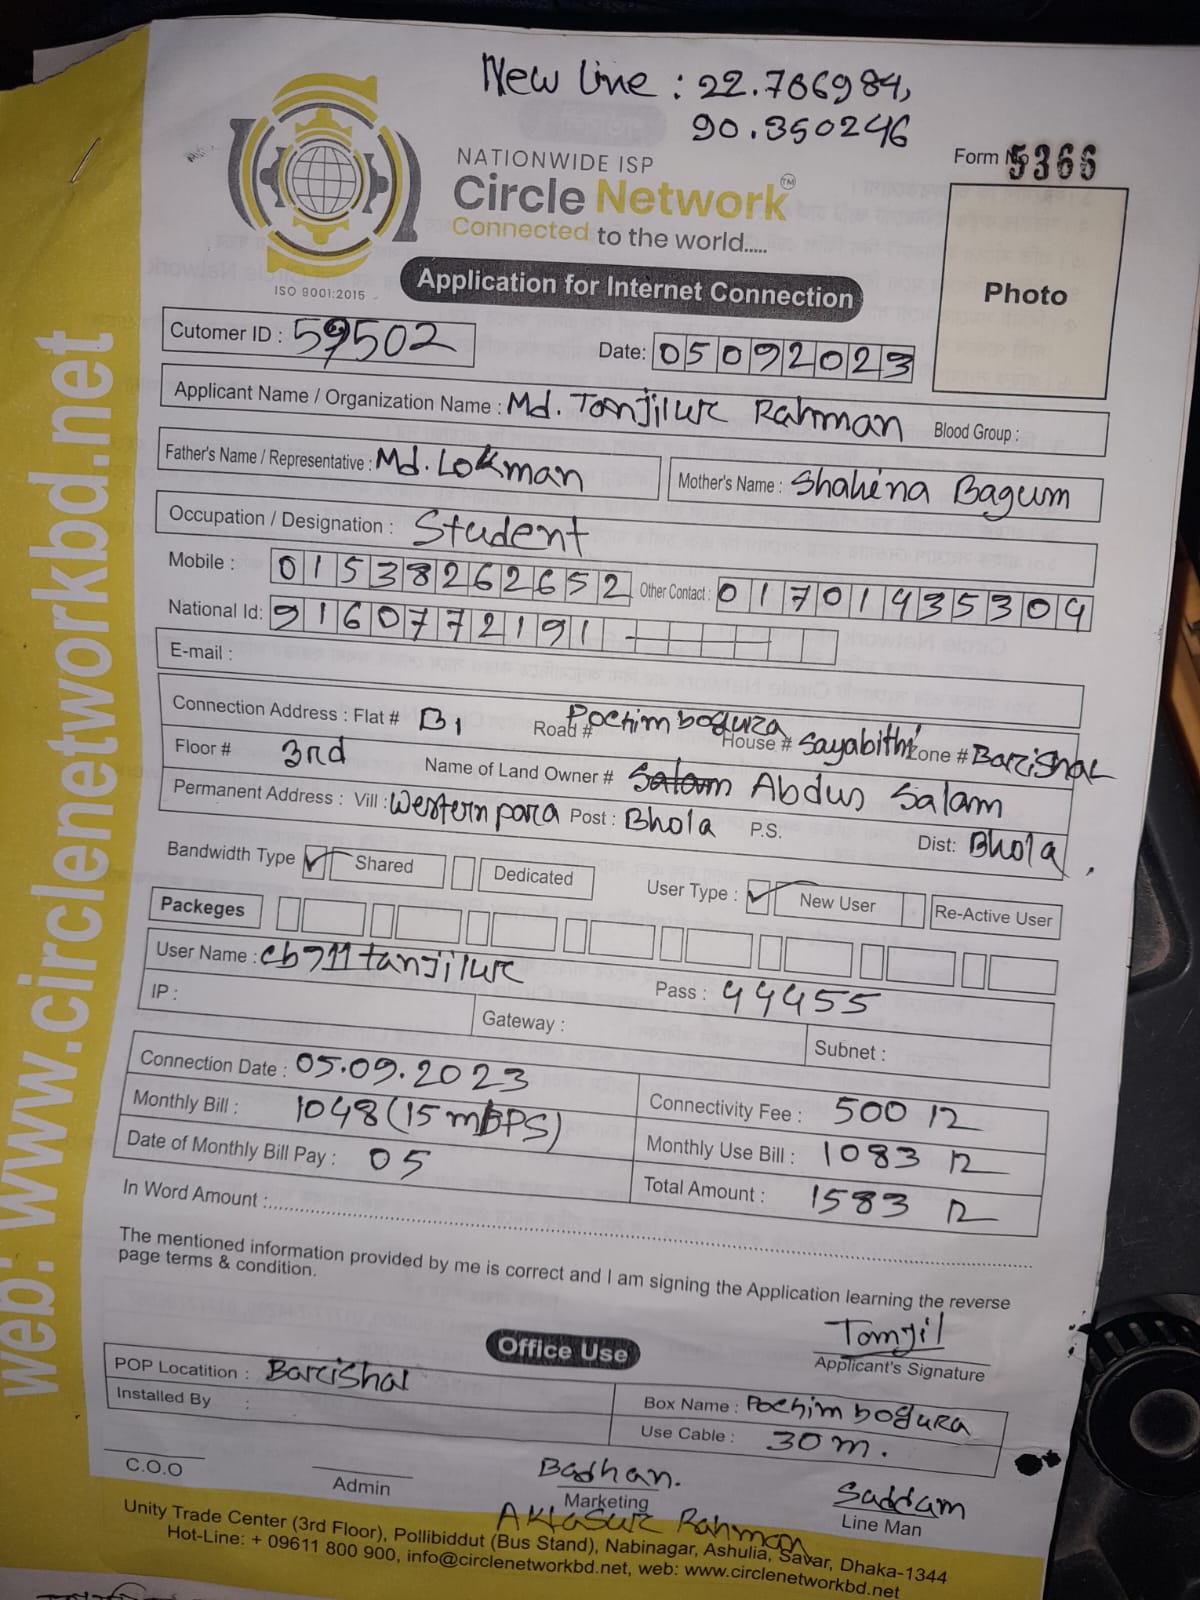 New Line : 22.706984,
90.350246
NATIONWIDE ISP
Circle Network™
Connected to the world.....
ISO 9001:2015
Form No 5366
Application for Internet Connection
Photo
Cutomer ID : 59502
Date: 05092023
Applicant Name / Organization Name : Md. Tanjilur Rahman
Blood Group :
Father's Name / Representative : Md. Lokman
Mother's Name : Shahina Bagum
Occupation / Designation : Student
Mobile : 01538262652 Other Contact : 01701435304
National Id: 9160772191
E-mail :
Connection Address : Flat # B1 Road # Pochim bogura House # Sayabithi Zone # Barishal
Floor # 3rd Name of Land Owner # Abdus Salam
Permanent Address : Vill : Western para Post : Bhola P.S. Dist: Bhola
Bandwidth Type Shared Dedicated User Type : New User Re-Active User
Packeges
User Name : cb711tanjilur Pass : 44455
IP : Gateway : Subnet :
Connection Date : 05.09.2023
Connectivity Fee : 500 /=
Monthly Bill : 1048 (15 mBPS)
Monthly Use Bill : 1083 /=
Date of Monthly Bill Pay : 05
Total Amount : 1583 /=
In Word Amount :
The mentioned information provided by me is correct and I am signing the Application learning the reverse
page terms & condition.
Tanjil
Applicant's Signature
Office Use
POP Locatition : Barishal
Box Name : Pochim bogura
Installed By :
Use Cable : 30 m.
C.O.O
Admin
Badhan.
Marketing
Saddam
Line Man
Rahman
Unity Trade Center (3rd Floor), Pollibiddut (Bus Stand), Nabinagar, Ashulia, Savar, Dhaka-1344
Hot-Line: + 09611 800 900, info@circlenetworkbd.net, web: www.circlenetworkbd.net
web: www.circlenetworkbd.net